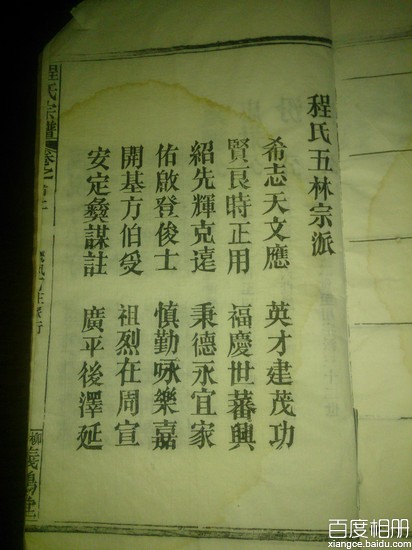 程氏五林宗派
希志天文應 英才建茂功
賢良時正用 福慶世蕃興
紹先輝克遠 秉德永宜家
佑啟登俊士 慎勤咏樂嘉
開基方伯受 祖烈在周宣
安定彜謀註 廣平後澤延
程氏宗譜 卷之首
百度相册
xiangce.baidu.com